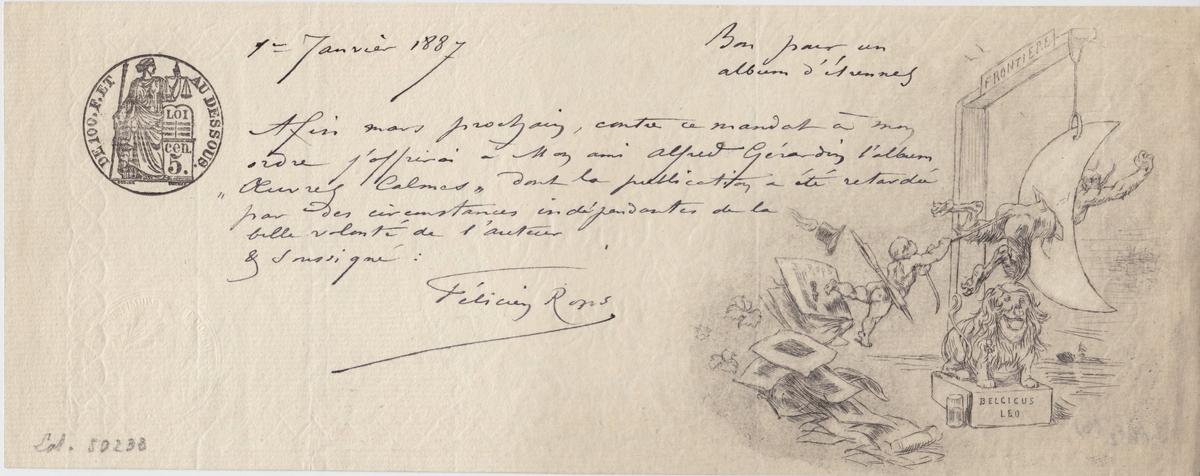 1er Janvier 1887
Bon pour un
album d'étrennes
FRONTIERE
DE 100.F. ET AU DESSOUS.
LOI
cen.
5.
Afin mars prochain, contre ce mandat à mon
ordre j'offrirai à Mon ami Alfred Gérardin l'album
"Œuvres Calmes" dont la publication a été retardée
par des circonstances indépendantes de la
belle volonté de l'auteur
& soussigné :
Félicien Rops
BELGICUS
LEO
Col. 50238